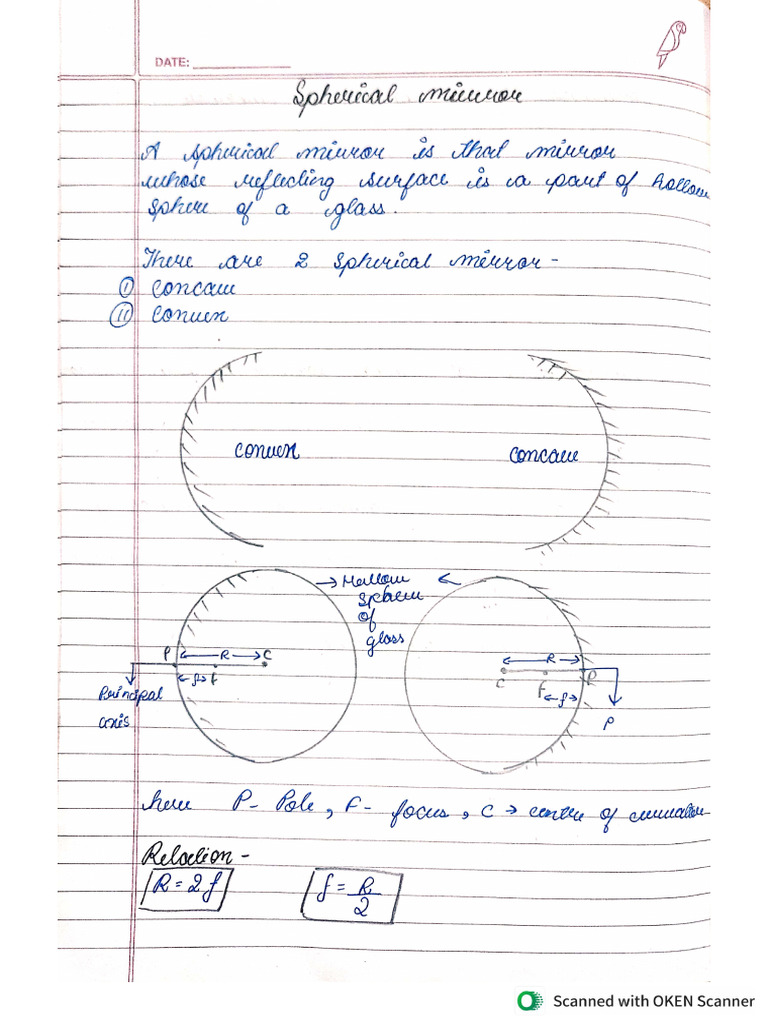 DATE:
Spherical mirror
A spherical mirror is that mirror
whose reflecting surface is a part of hollow
sphere of a glass.
There are 2 spherical mirror-
(I) Concave
(II) Convex
convex
concave
→ Hollow ←
sphere
of
glass
P ← R → C
← f → F
Principal
axis
← R →
C F P
← f →
P
here P- Pole, F- focus, C → centre of curvature
Relation-
R = 2f
f = R/2
Scanned with OKEN Scanner